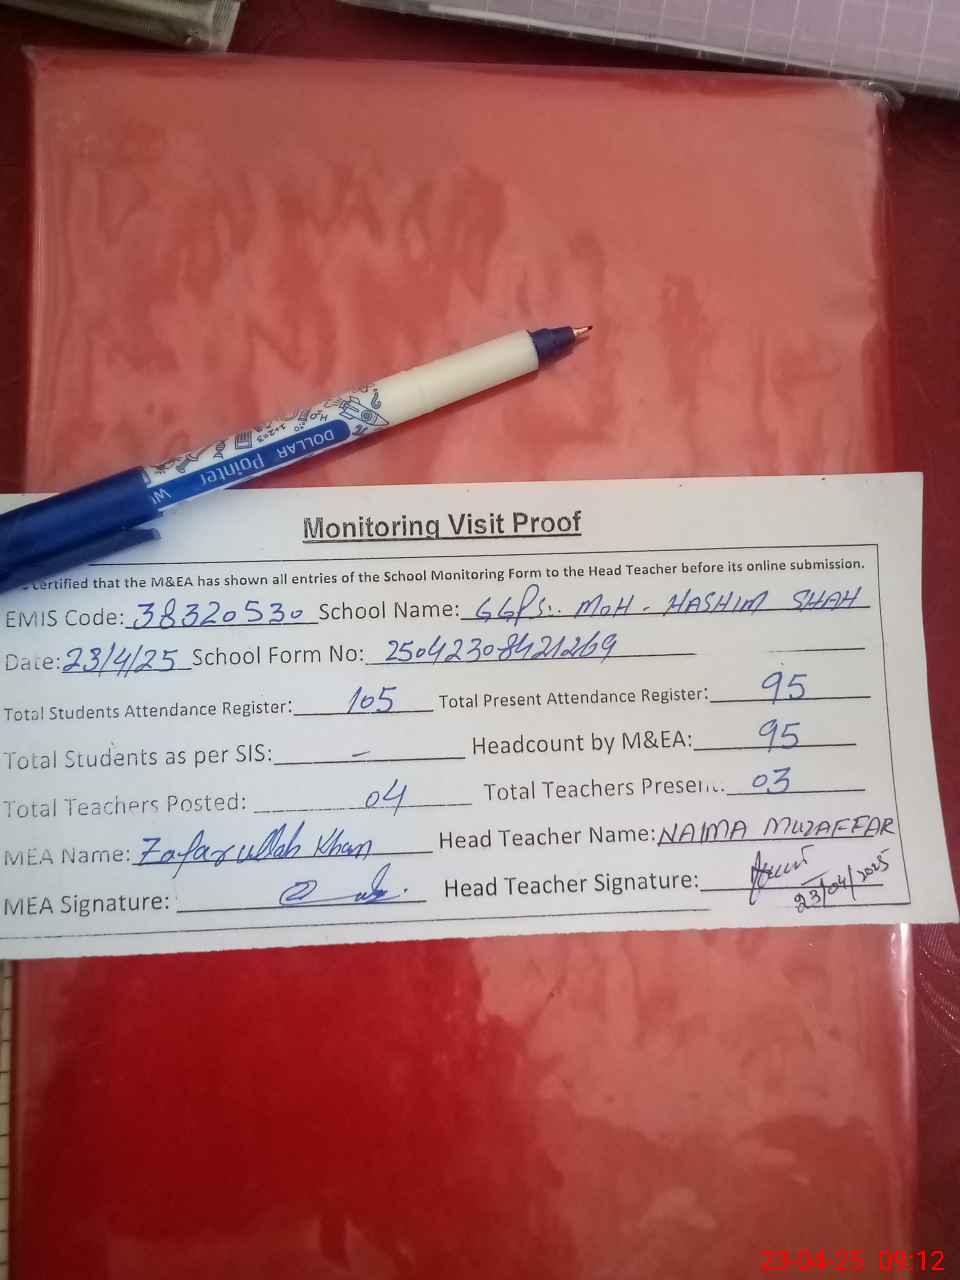 DOLLAR Pointer
Monitoring Visit Proof
certified that the M&EA has shown all entries of the School Monitoring Form to the Head Teacher before its online submission.
EMIS Code: 38320530 School Name: GGPS. MOH - HASHIM SHAH
Date: 23/4/25 School Form No: 25042308421269
Total Students Attendance Register: 105 Total Present Attendance Register: 95
Total Students as per SIS: - Headcount by M&EA: 95
Total Teachers Posted: 04 Total Teachers Present: 03
MEA Name: Zafarullah Khan Head Teacher Name: NAIMA MUZAFFAR
MEA Signature: Head Teacher Signature:
23/04/2025
23-04-25 09:12